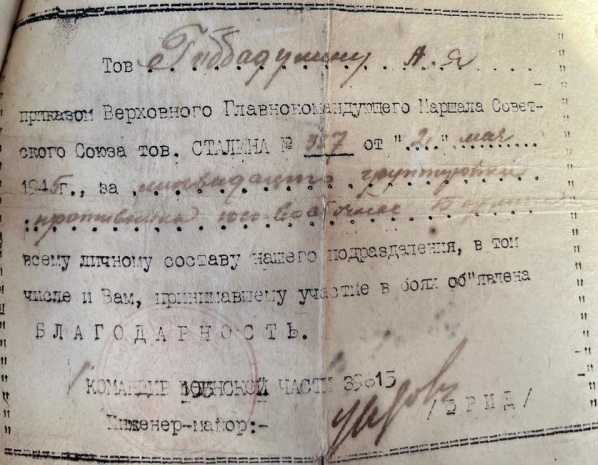 Тов. Гиббадулину А. Я
приказом Верховного Главнокомандующего Маршала Совет-
ского Союза тов. СТАЛИНА № 357 от "2" мая
1945г., за ликвидацию группировки
противника юго-восточнее Берлина
всему личному составу нашего подразделения, в том
числе и Вам, принимавшему участие в боях об"явлена
БЛАГОДАРНОСТЬ.
КОМАНДИР ВОИНСКОЙ ЧАСТИ 39615
Инженер-майор:- /ФРИД/